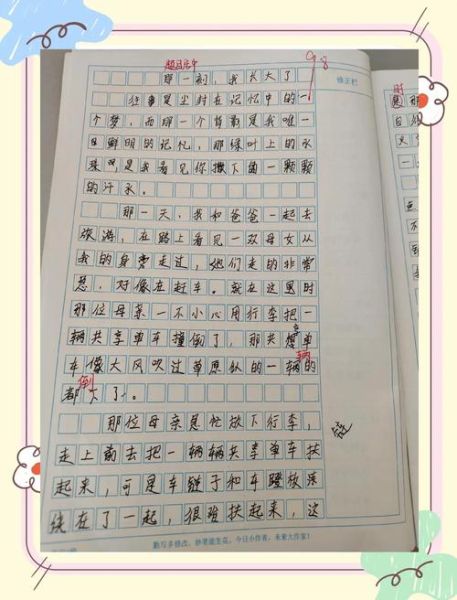 那一刻，我长大了
98
修正栏
往事是尘封在记忆中的
个梦，而那一个首勤是我唯一
日鲜明的记忆，那绿叶上的水
珠只是我看见你撒下的一颗颗
的汗水。
那一天，我和爸爸一起去
旅游，在路上看见一双母女从
我的身旁走过，她们走的非常
忽，好像在赶车。就在这里时
那位母亲一不小心用行李把一
辆共享单车撞倒了，那共享单
车像大风吹过草原似的一辆辆的
都倒下了。
那位母亲急忙放下行李，
走上前去把一辆辆共享单车扶
起来，可是车链子和车蹬板
绕在了一起，很难扶起来，这
勤写多修改，妙笔能生花，今日小作者，未来大作家！